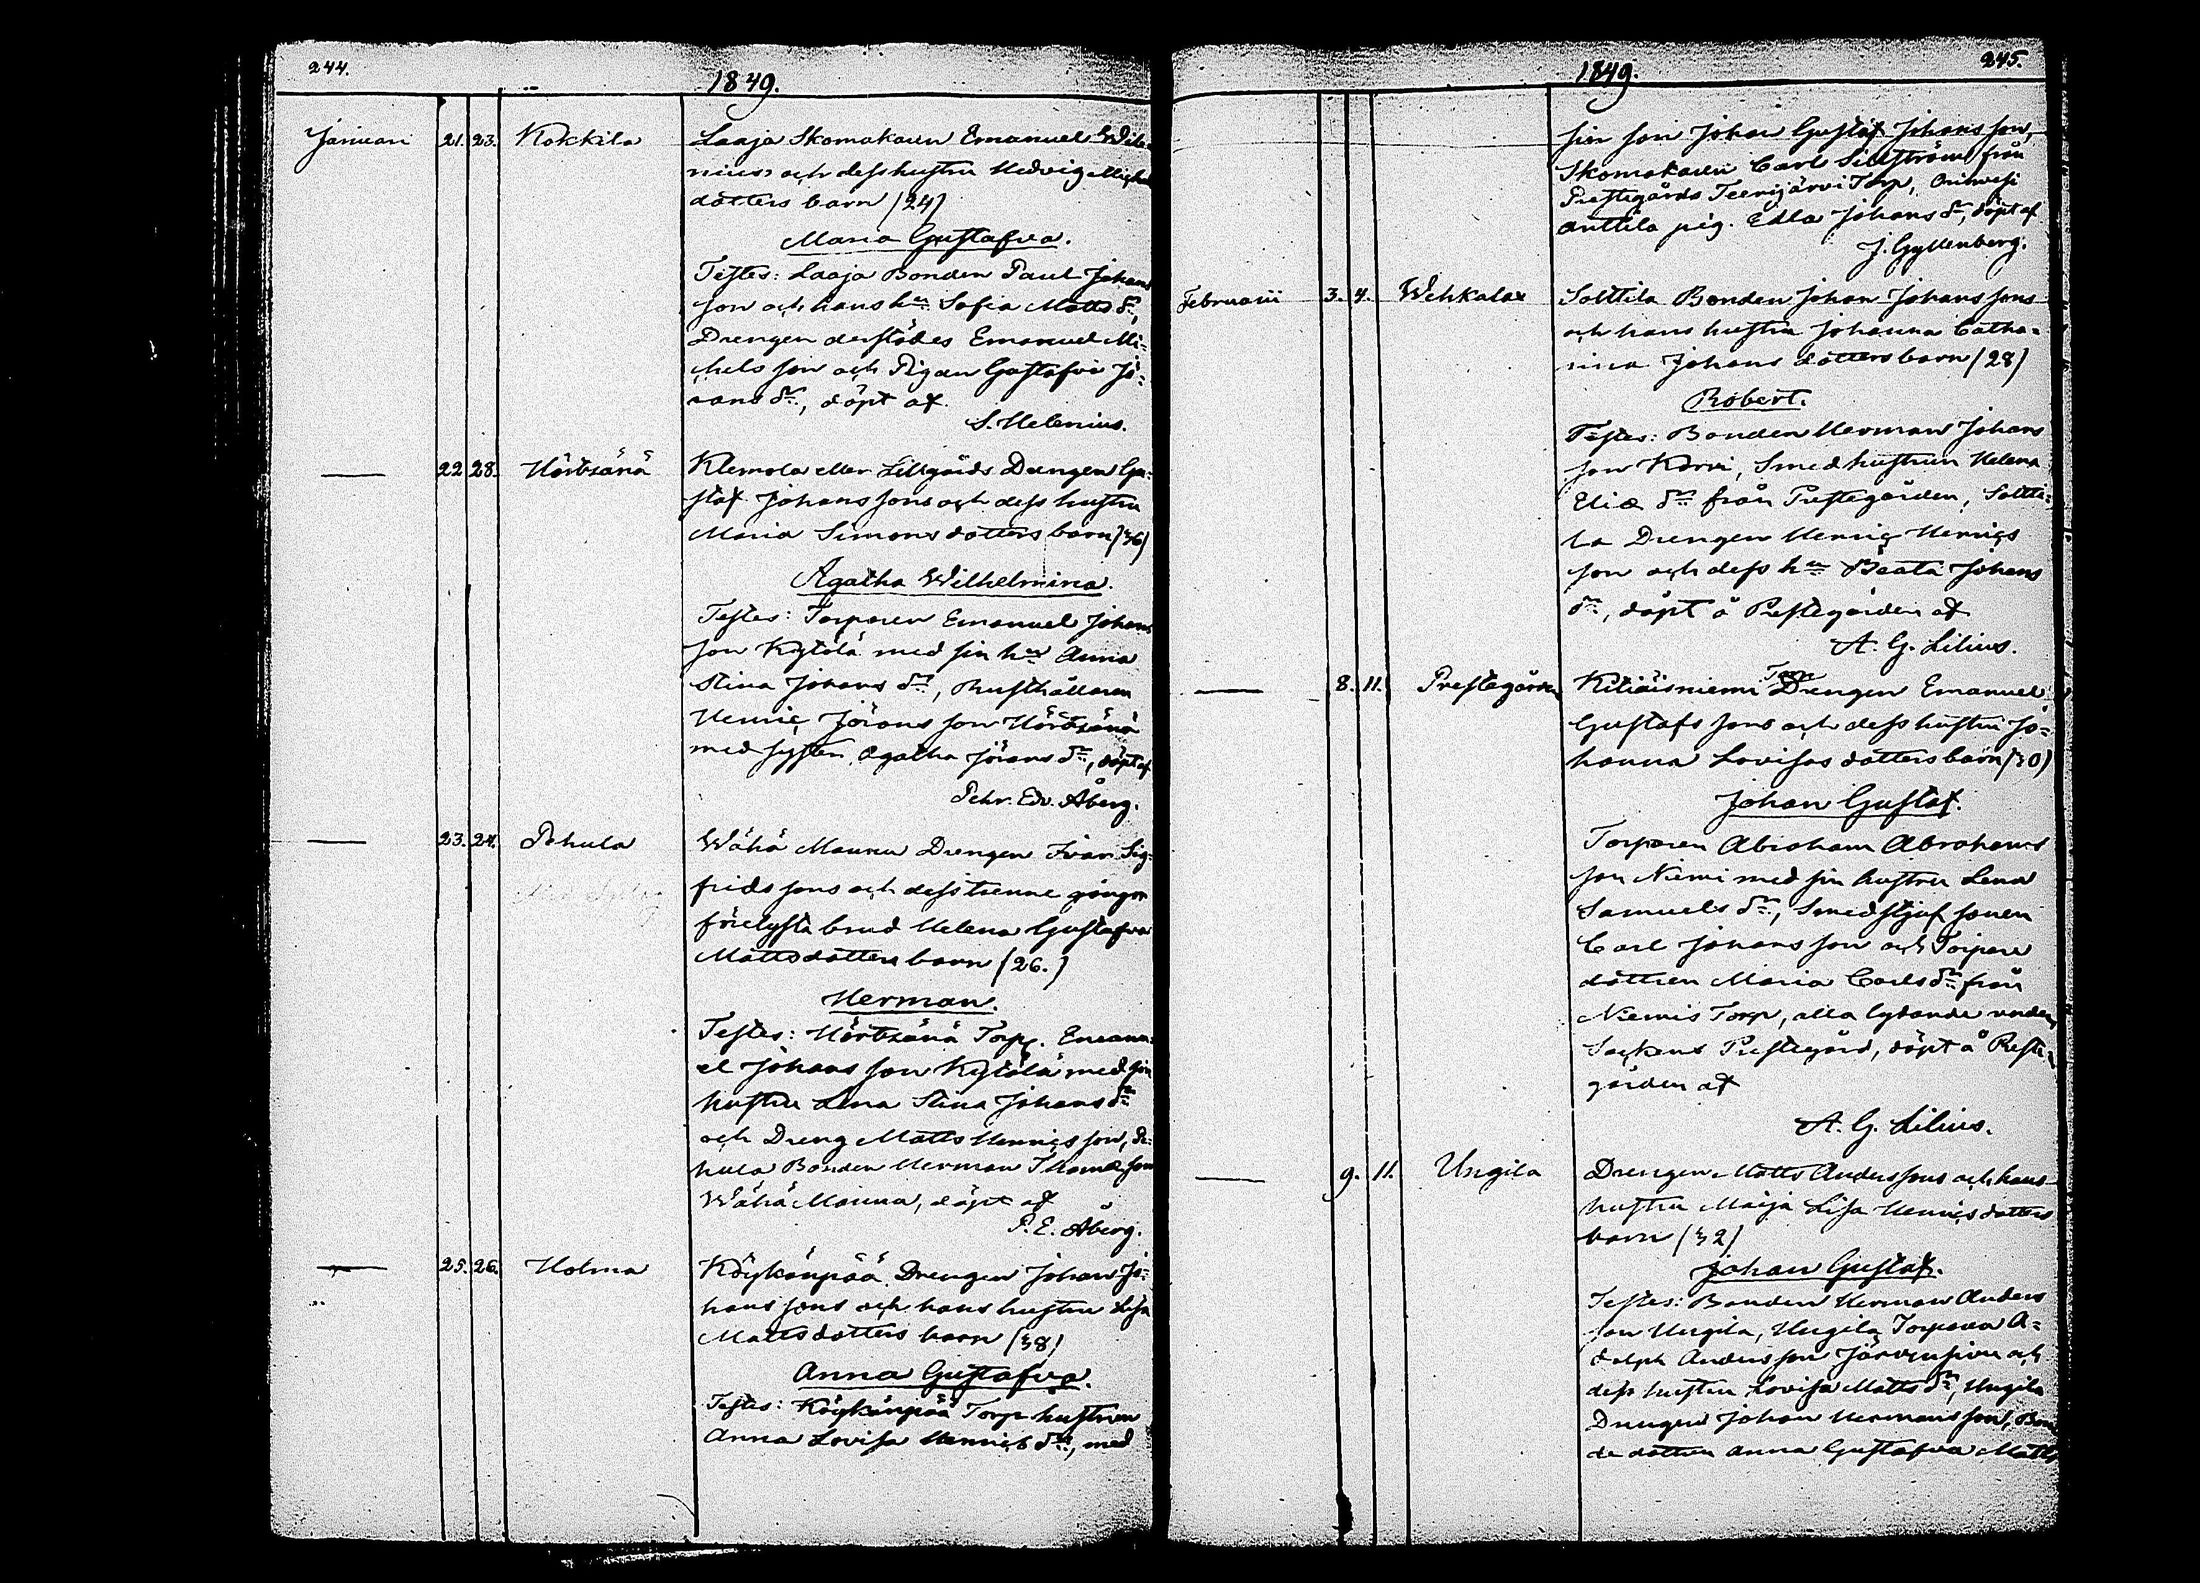 244.
1849.
Januari 21. 23. Kokkila Laaja Skomakaren Emanuel Wile-
nius och dess hustru Hedvig Michels
dotters barn (24)
Maria Gustafva.
Testes: Laaja Bonden Paul Johans
son och hans hu Sofia Matts dr,
Drengen derstädes Emanuel Mi=
chels son och Pigan Gustafva Jö=
rans dr, döpt af
S. Helenius.
— 22. 28. Hörtsänä Klemola eller Lillgårds Drengen Gu=
staf Johans sons och dess hustru
Maria Simons dotters barn (36)
Agatha Wilhelmina.
Testes: Torparen Emanuel Johans
son Kytölä med sin hu Anna
Stina Johans dr, Rusthållaren
Henric Jörans son Hörtsänä
med systern Agatha Jörans dr, döpt af
Pehr. Edv. Åberg.
— 23. 24. Pehula Wähä Maunu Drengen Ivar Sig=
frids sons och dess trenne gångor
förelysta brud Helena Gustafva
Mattsdotters barn (26.)
Herman.
Testes: Hörtsänä Torp. Emanu=
el Johans son Kytölä med sin
hustru Lena Stina Johans dr
och Dreng Matts Henrics son, Pe=
hula Bonden Herman Thomæ son
Wähä Maunu, döpt af
P. E. Åberg.
— 25. 26. Holma Köykänpää Drengen Johan Jo=
hans sons och hans hustru Lisa
Matts dotters barn (38)
Anna Gustafva.
Testes: Köykänpää Torp hustrun
Anna Lovisa Henrics dr, med
245.
1849.
sin son Johan Gustaf Johans son,
Skomakaren Carl Sillström från
Prestegårds Teerijärvi Torp, Orihvesi
Anttila pig. Edla Johans dr, döpt af
J. Gyllenberg.
Februarii 3. 4. Wehkalax Solttila Bonden Johan Johans sons
och hans hustru Johanna Catha=
rina Johans dotters barn (28)
Robert.
Testes: Bonden Herman Johans
son Korvi, Smedhustrun Helena
Eliæ dr från Prestegården, Soltti=
la Drengen Henric Henrics
son och dess hu Beata Johans
dr, döpt å Prestegården af
A. G. Lilius.
— 8. 11. Prestegården Kiliäisniemi Torp Drengen Emanuel
Gustafs sons och dess hustru Jo=
hanna Lovisas dotters barn (30)
Johan Gustaf.
Torparen Abraham Abrahams
son Niemi med sin hustru Lena
Samuels dr, Smedstjuf sonen
Carl Johans son och Torpare
dottren Maria Carls dr från
Niemis Torp, alla lydande under
Sockens Prestegård, döpt å Preste=
gården af
A. G. Lilius.
— 9. 11. Ungila Drengen Matts Anders sons och hans
hustru Maija Lisa Henrics dotters
barn (32)
Johan Gustaf.
Testes: Bonden Herman Anders
son Ungila, Ungila Torparen A=
dolph Anders son Järvensivu och
dess hustru Lovisa Matts dr, Ungila
Drengen Johan Hermans son, Bon
de dottren Anna Gustafva Matts